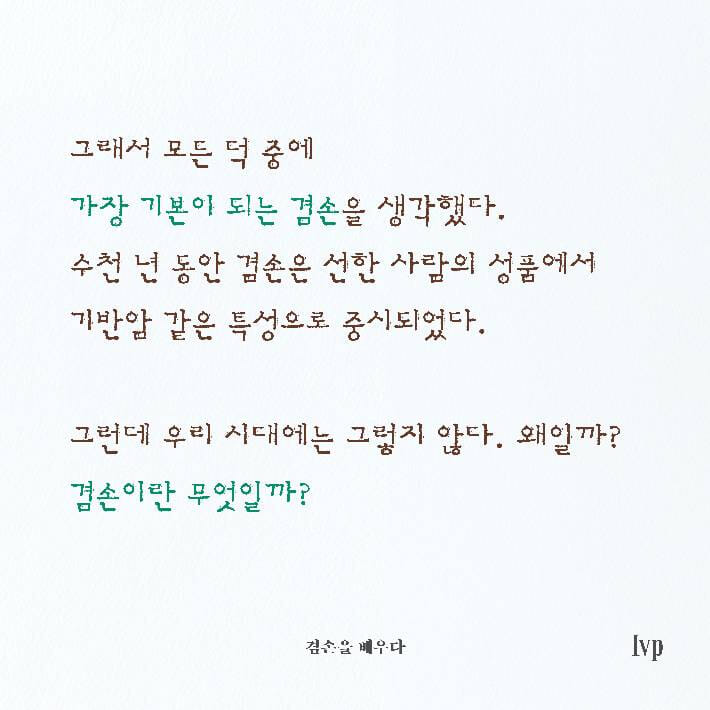 그래서 모든 덕 중에
가장 기본이 되는 겸손을 생각했다.
수천 년 동안 겸손은 선한 사람의 성품에서
기반암 같은 특성으로 중시되었다.
그런데 우리 시대에는 그렇지 않다. 왜일까?
겸손이란 무엇일까?
겸손을 배우다
Ivp